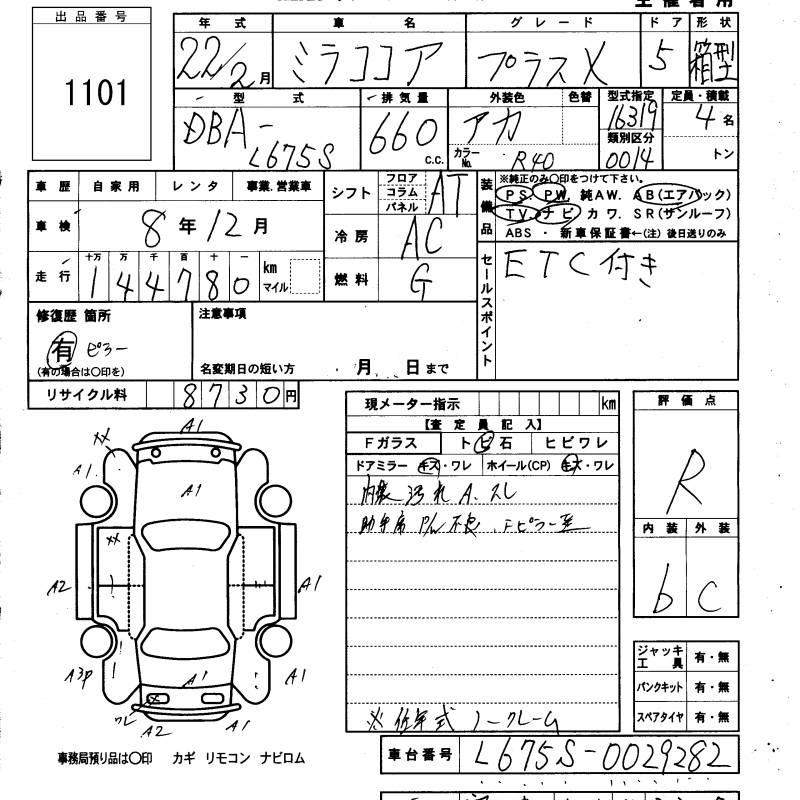 出品番号
1101
年式 車名 グレード ドア 形状
22/2月 ミラココア プラスX 5 箱型
型式 排気量 外装色 色替 型式指定 定員・積載
DBA-L675S 660 C.C. アカ 16319 4名
カラーNo. R40 類別区分 0014 トン
車歴 自家用 レンタ 事業.営業車
シフト フロア コラム パネル AT
装備品 ※純正のみ〇印をつけて下さい。
PS. PW. 純AW. AB(エアバック)
TV. ナビ カワ. SR(サンルーフ)
ABS ・ 新車保証書←(注) 後日送りのみ
車検 8年12月
冷房 AC
走行 十万 万 千 百 十 一
144780 km マイル
燃料 G
セールスポイント ETC付き
修復歴 箇所
有 ピラー
(有の場合は〇印を)
注意事項
名変期日の短い方 月 日まで
リサイクル料 8730円
現メーター指示 km
【査定員記入】
Fガラス トビ石 ヒビワレ
ドアミラー キズ・ワレ ホイール(CP) キズ・ワレ
内装汚れ A.スレ
助手席 P/W 不良
※低年式 ノークレーム
評価点
R
内装 外装
b C
ジャッキ工具 有・無
パンクキット 有・無
スペアタイヤ 有・無
A1
XX
A1.
A1
XX
A2
A1
A3P
A1
A1
A1
X
ワレ
A2
A1
事務局預り品は〇印 カギ リモコン ナビロム
車台番号 L675S-0029282